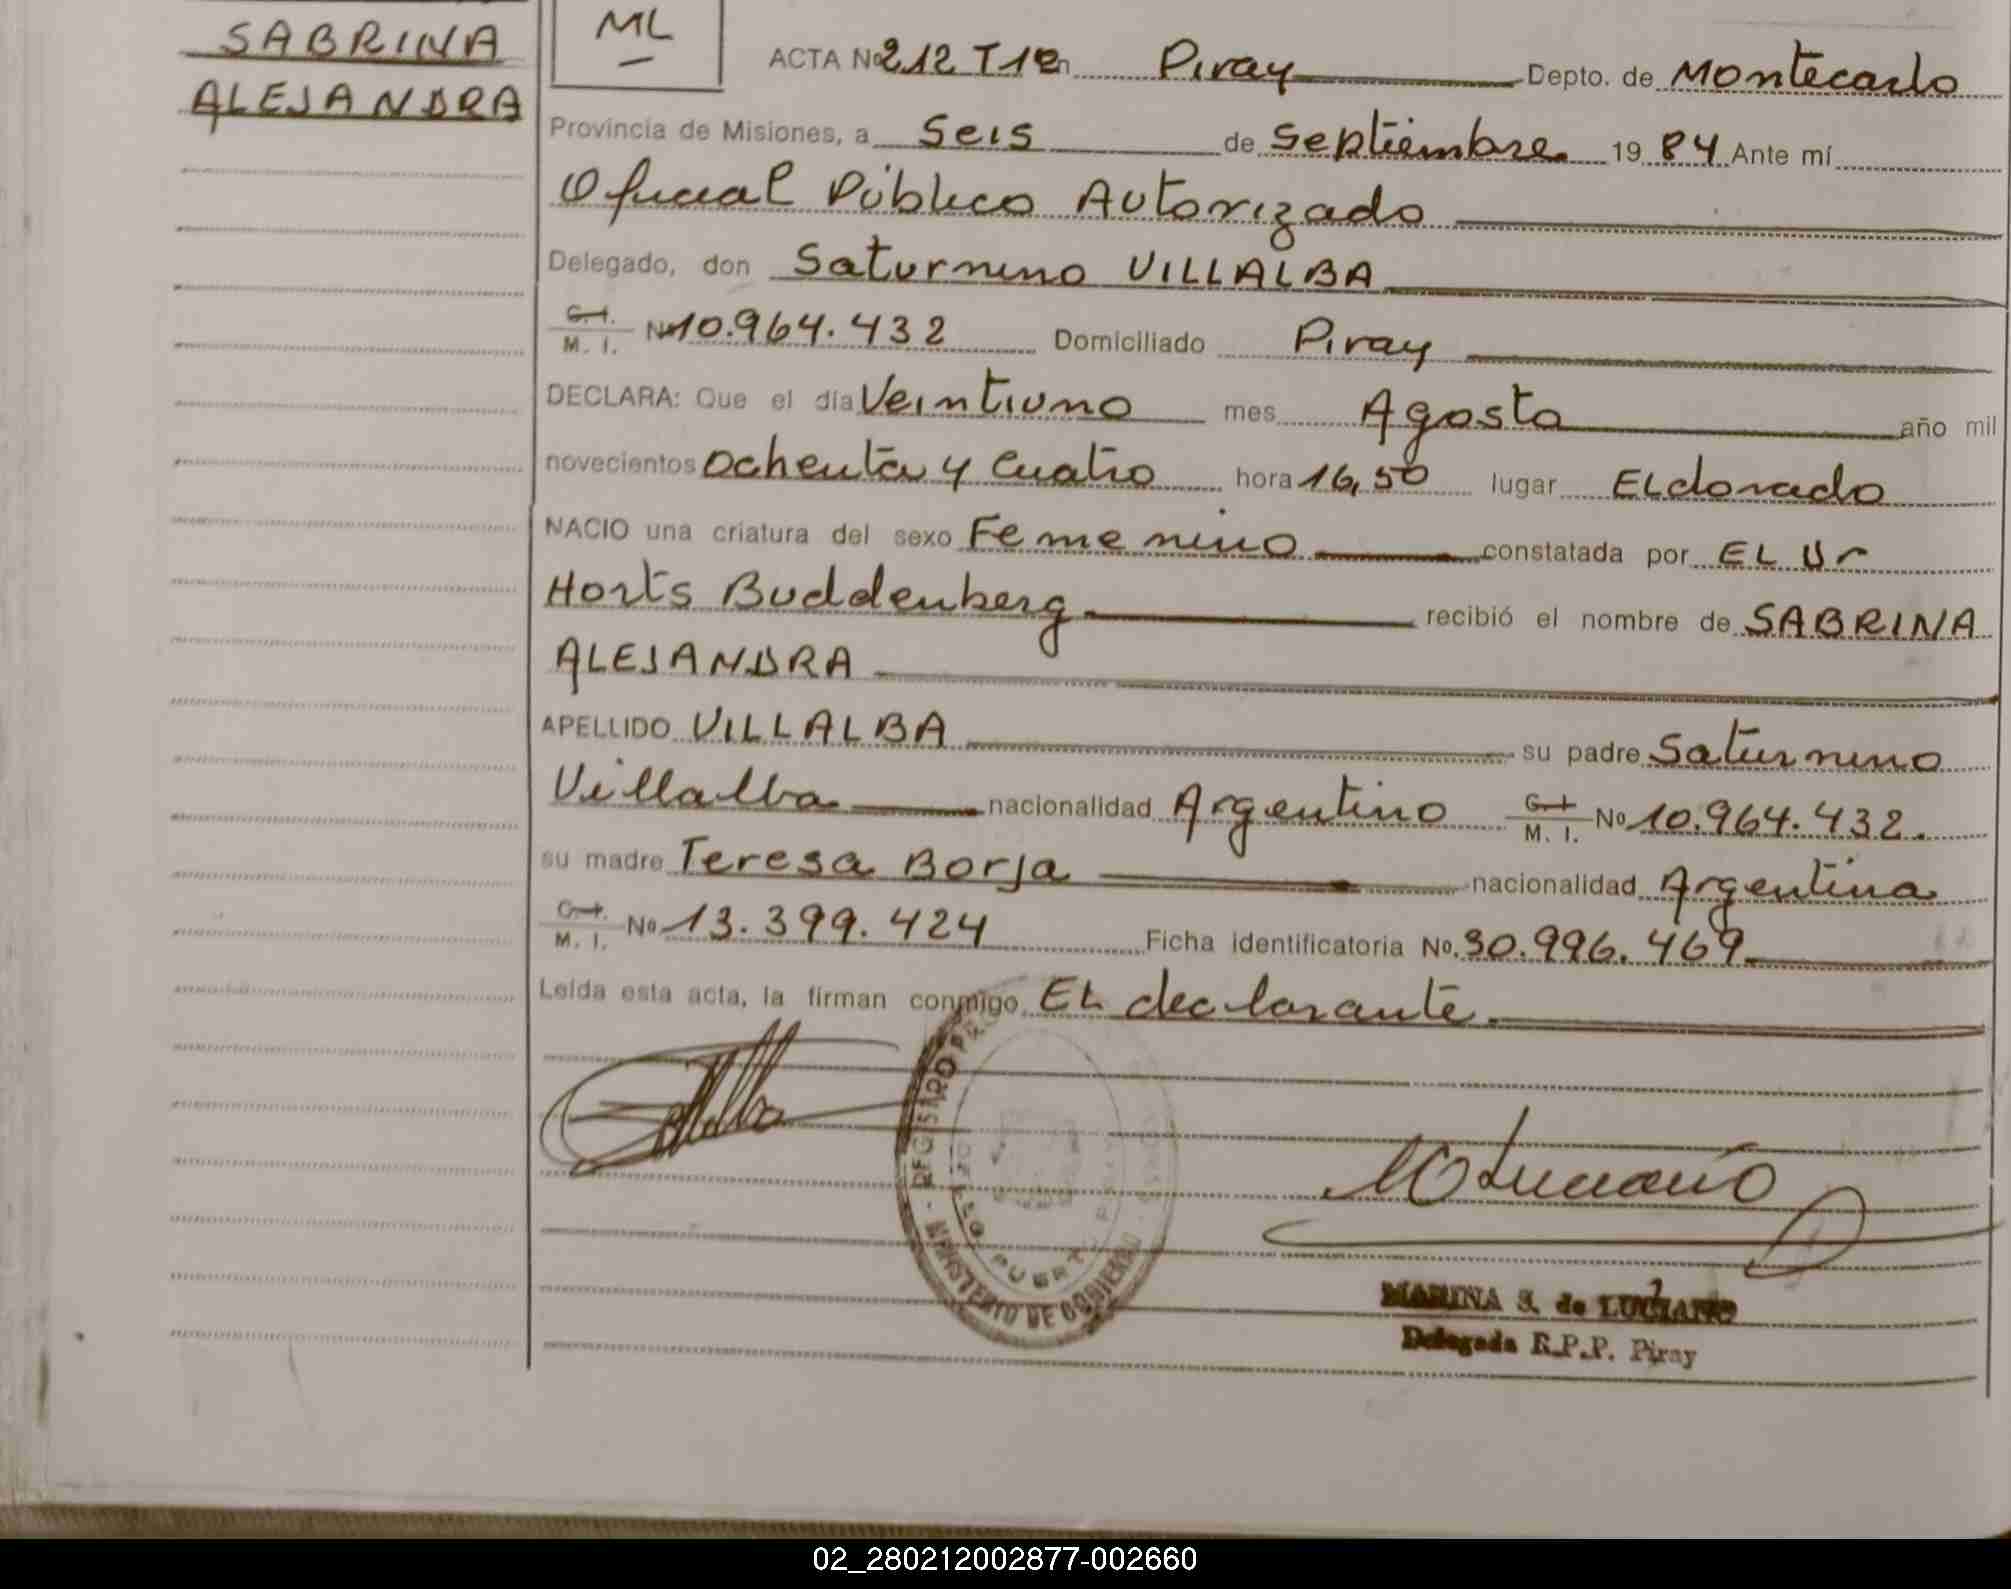 SABRINA
ALEJANDRA
ML
ACTA No 212 T1º en Piray Depto. de Montecarlo
Provincia de Misiones, a Seis de Septiembre 19 84 Ante mí
Oficial Público Autorizado
Delegado, don Saturnino VILLALBA
C.I. M. I. No 10.964.432 Domiciliado Piray
DECLARA: Que el día Veintiuno mes Agosto año mil
novecientos Ochenta y Cuatro hora 16,50 lugar ELdorado
NACIO una criatura del sexo Femenino constatada por EL Dr
Horts Buddenberg recibió el nombre de SABRINA
ALEJANDRA
APELLIDO VILLALBA su padre Saturnino
Villalba nacionalidad Argentino C.I. M. I. No 10.964.432.
su madre Teresa Borja nacionalidad Argentina
C.I. M. I. No 13.399.424 Ficha identificatoria No. 30.996.469
Leída esta acta, la firman conmigo EL declarante.
REGISTRO
MINISTERIO DE GOBIERNO
MLuciano
MARINA S. de LUCIANO
Delegada R.P.P. Piray
02_280212002877-002660